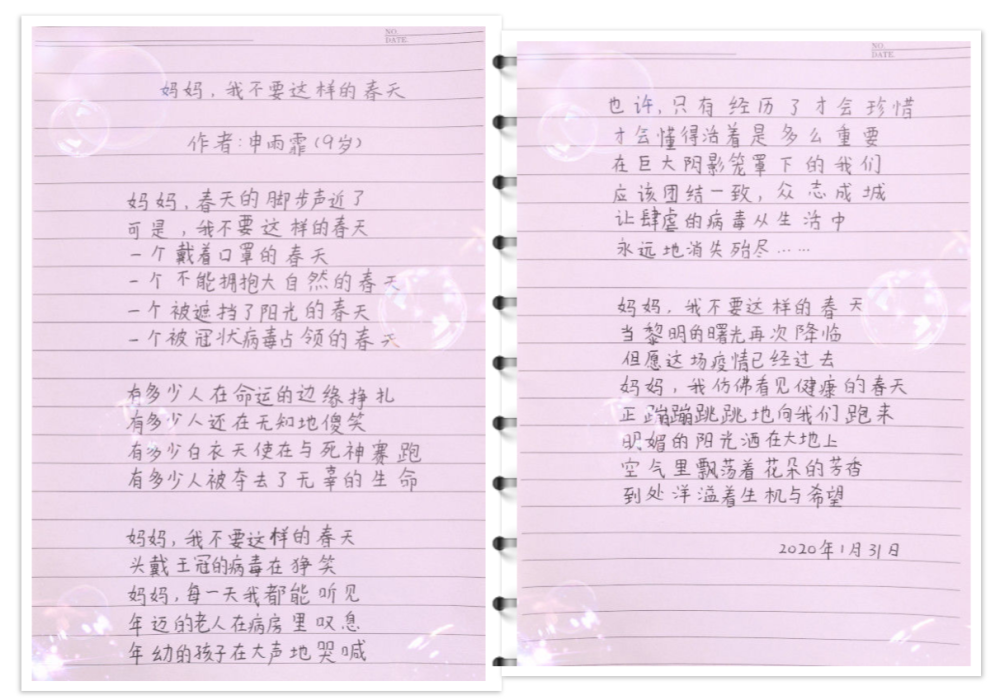 NO.
DATE.
妈妈，我不要这样的春天
作者：申雨霏（9岁）
妈妈，春天的脚步声近了
可是，我不要这样的春天
一个戴着口罩的春天
一个不能拥抱大自然的春天
一个被遮挡了阳光的春天
一个被冠状病毒占领的春天
有多少人在命运的边缘挣扎
有多少人还在无知地傻笑
有多少白衣天使在与死神赛跑
有多少人被夺去了无辜的生命
妈妈，我不要这样的春天
头戴王冠的病毒在狰笑
妈妈，每一天我都能听见
年迈的老人在病房里叹息
年幼的孩子在大声地哭喊
NO.
DATE.
也许，只有经历了才会珍惜
才会懂得活着是多么重要
在巨大阴影笼罩下的我们
应该团结一致，众志成城
让肆虐的病毒从生活中
永远地消失殆尽……
妈妈，我不要这样的春天
当黎明的曙光再次降临
但愿这场疫情已经过去
妈妈，我仿佛看见健康的春天
正蹦蹦跳跳地向我们跑来
明媚的阳光洒在大地上
空气里飘荡着花朵的芳香
到处洋溢着生机与希望
2020年1月31日